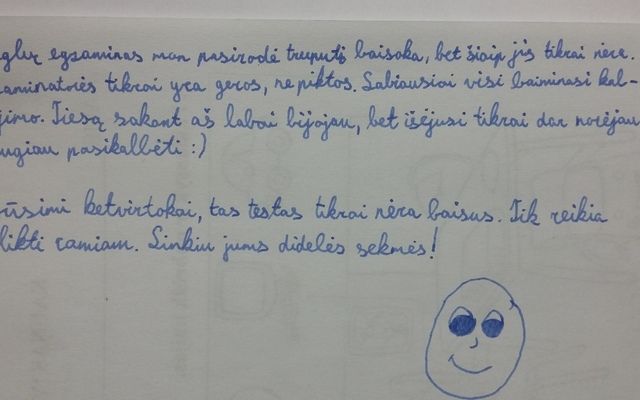 glų egzaminas man pasirodė truputį baisoka, bet šiaip jis tikrai nėra.
aminatorės tikrai yra geros, ne piktos. Labiausiai visi baiminasi kal-
jimo. Tiesą sakant aš labai bijojau, bet išėjusi tikrai dar norėjau
ugiau pasikalbėti :)
ūsimi ketvirtokai, tas testas tikrai nėra baisus. Tik reikia
likti ramiam. Linkiu jums didelės sėkmės!